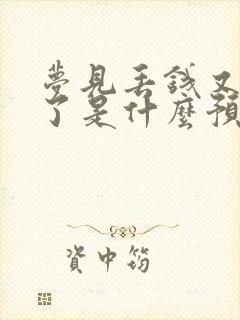 夢見丟錢又
了是什麼預
資中筠